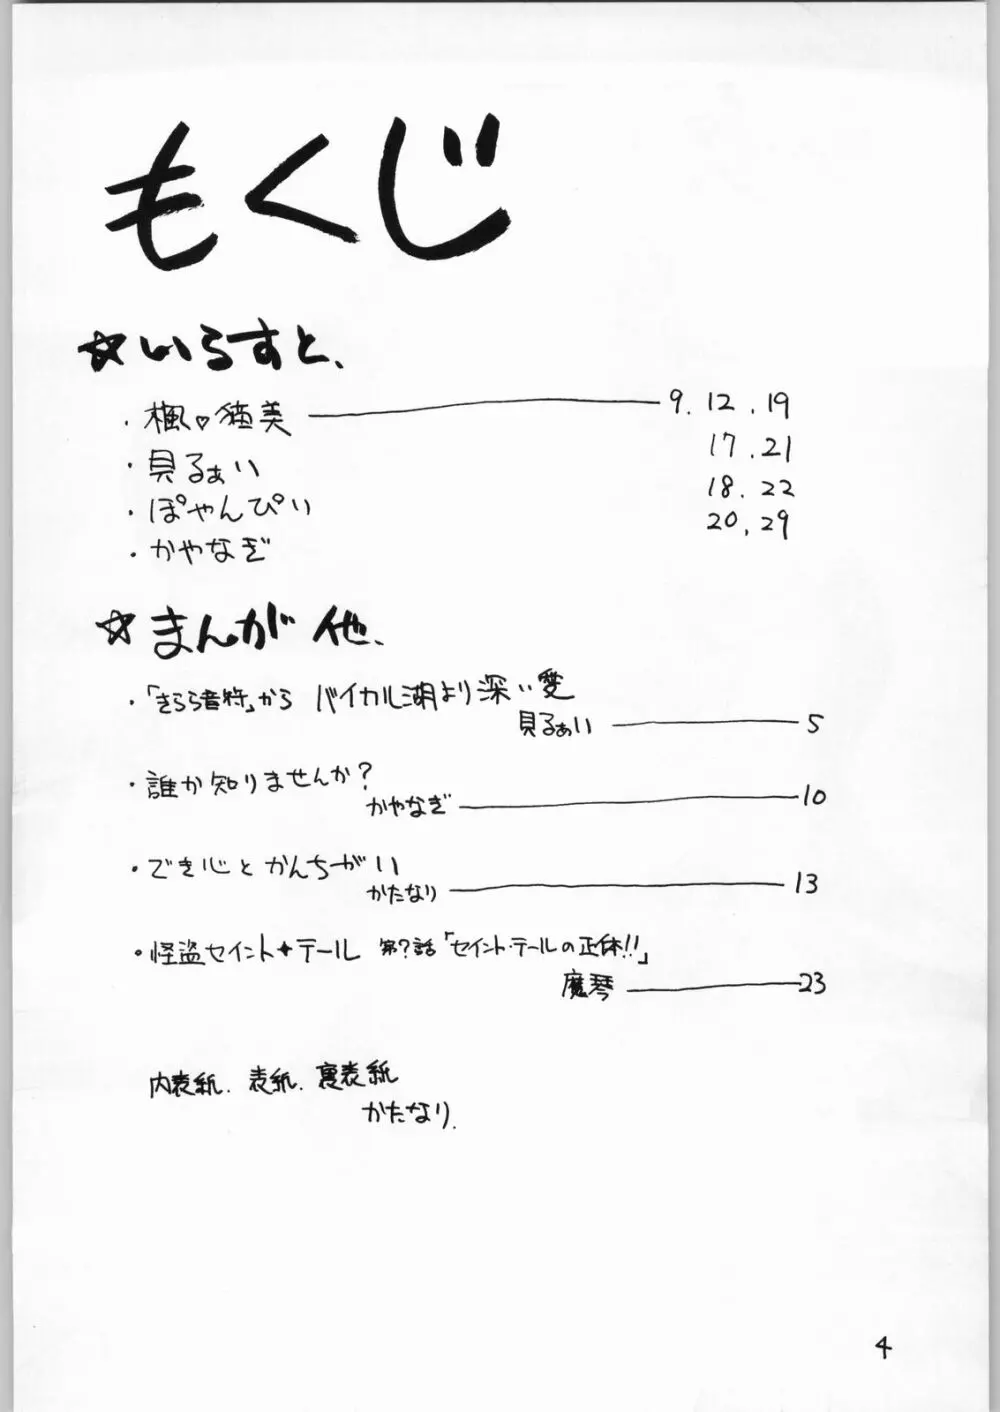 もくじ
☆いらすと、
・楓♡猫美 9.12.19
・貝るぁい 17.21
・ぽやんぴい 18.22
・かやなぎ 20,29
☆まんが他、
・「きらら音符」から バイカル湖より深い愛
貝るぁい 5
・誰か知りませんか?
かやなぎ 10
・でき心とかんちがい
かたなり 13
・怪盗セイント✦テール 第?話「セイント・テールの正体!!」
魔琴 23
内表紙、表紙、裏表紙
かたなり.
4